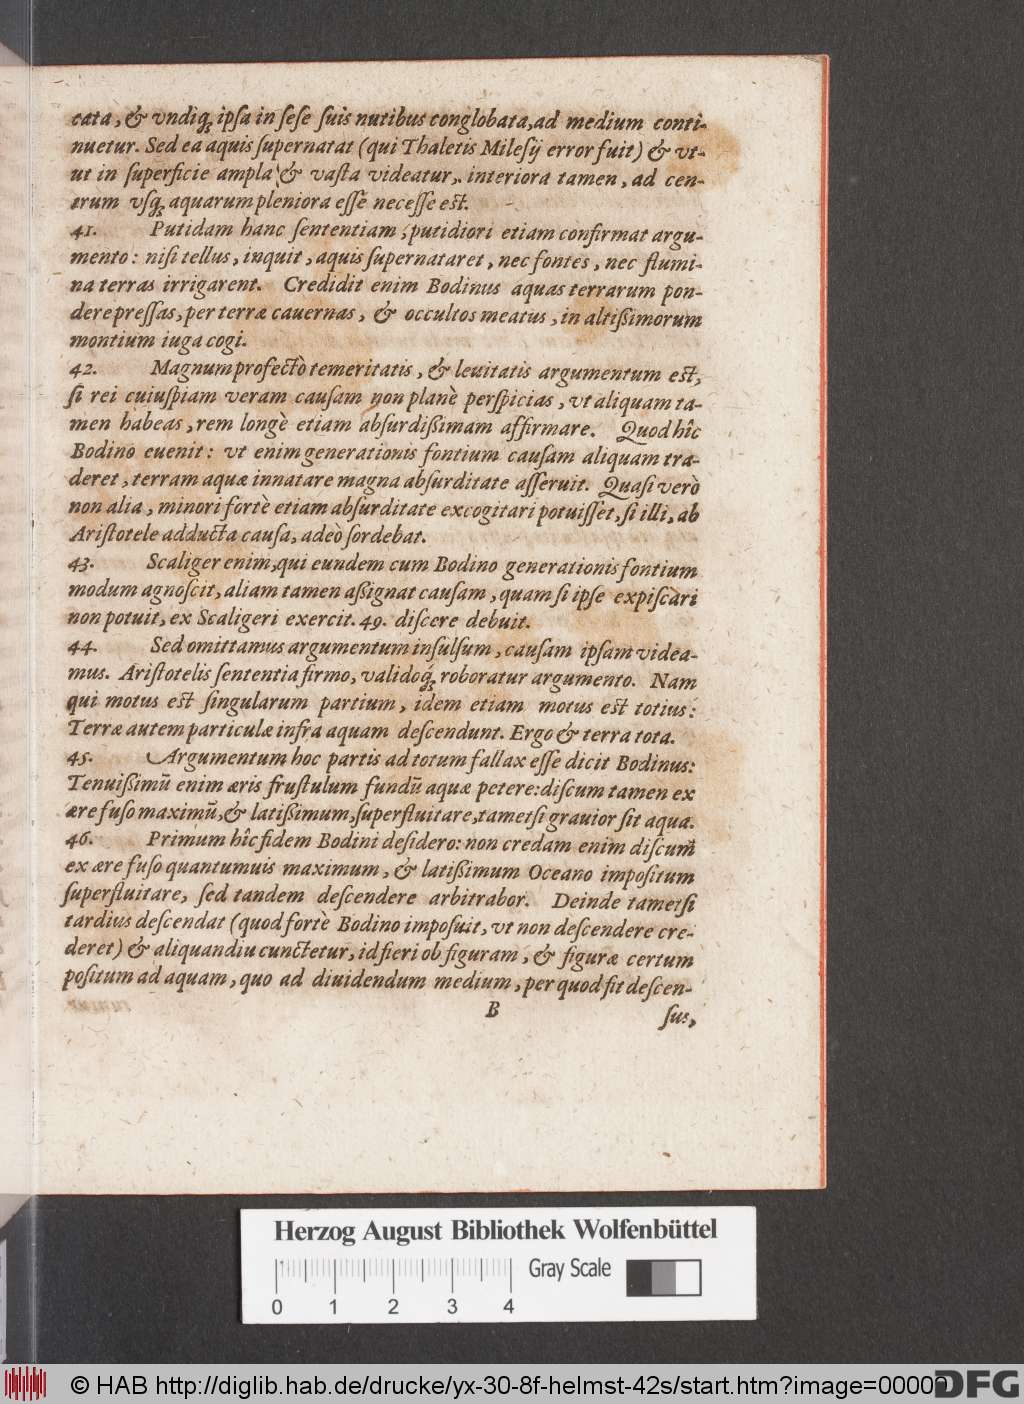 cata, & vndiq́; ipsa in sese suis nutibus conglobata, ad medium conti-
nuetur. Sed ea aquis supernatat (qui Thaletis Milesij error fuit) & vt-
ut in superficie ampla & vasta videatur, interiora tamen, ad cen-
trum vsq́; aquarum pleniora esse necesse est.
41. Putidam hanc sententiam, putidiori etiam confirmat argu-
mento: nisi tellus, inquit, aquis supernataret, nec fontes, nec flumi-
na terras irrigarent. Credidit enim Bodinus aquas terrarum pon-
dere pressas, per terræ cauernas, & occultos meatus, in altißimorum
montium iuga cogi.
42. Magnum profectò temeritatis, & leuitatis argumentum est,
si rei cuiuspiam veram causam non planè perspicias, vt aliquam ta-
men habeas, rem longè etiam absurdißimam affirmare. Quod hîc
Bodino euenit: vt enim generationis fontium causam aliquam tra-
deret, terram aquæ innatare magna absurditate asseruit. Quasi verò
non alia, minori fortè etiam absurditate excogitari potuisset, si illi, ab
Aristotele adducta causa, adeò sordebat.
43. Scaliger enim, qui eundem cum Bodino generationis fontium
modum agnoscit, aliam tamen aßignat causam, quam si ipse expiscari
non potuit, ex Scaligeri exercit. 49. discere debuit.
44. Sed omittamus argumentum insulsum, causam ipsam videa-
mus. Aristotelis sententia firmo, validoq́; roboratur argumento. Nam
qui motus est singularum partium, idem etiam motus est totius:
Terræ autem particulæ infra aquam descendunt. Ergo & terra tota.
45. Argumentum hoc partis ad totum fallax esse dicit Bodinus:
Tenuißimū enim æris frustulum fundū aquæ petere: discum tamen ex
ære fuso maximū, & latißimum, superfluitare, tametsi grauior sit aqua.
46. Primum hîc fidem Bodini desidero: non credam enim discum
ex ære fuso quantumuis maximum, & latißimum Oceano impositum
superfluitare, sed tandem descendere arbitrabor. Deinde tametsi
tardius descendat (quod fortè Bodino imposuit, vt non descendere cre-
deret) & aliquandiu cunctetur, id fieri ob figuram, & figuræ certum
positum ad aquam, quo ad diuidendum medium, per quod fit descen-
B sus,
Herzog August Bibliothek Wolfenbüttel
Gray Scale
0 1 2 3 4
© HAB http://diglib.hab.de/drucke/yx-30-8f-helmst-42s/start.htm?image=00009
DFG